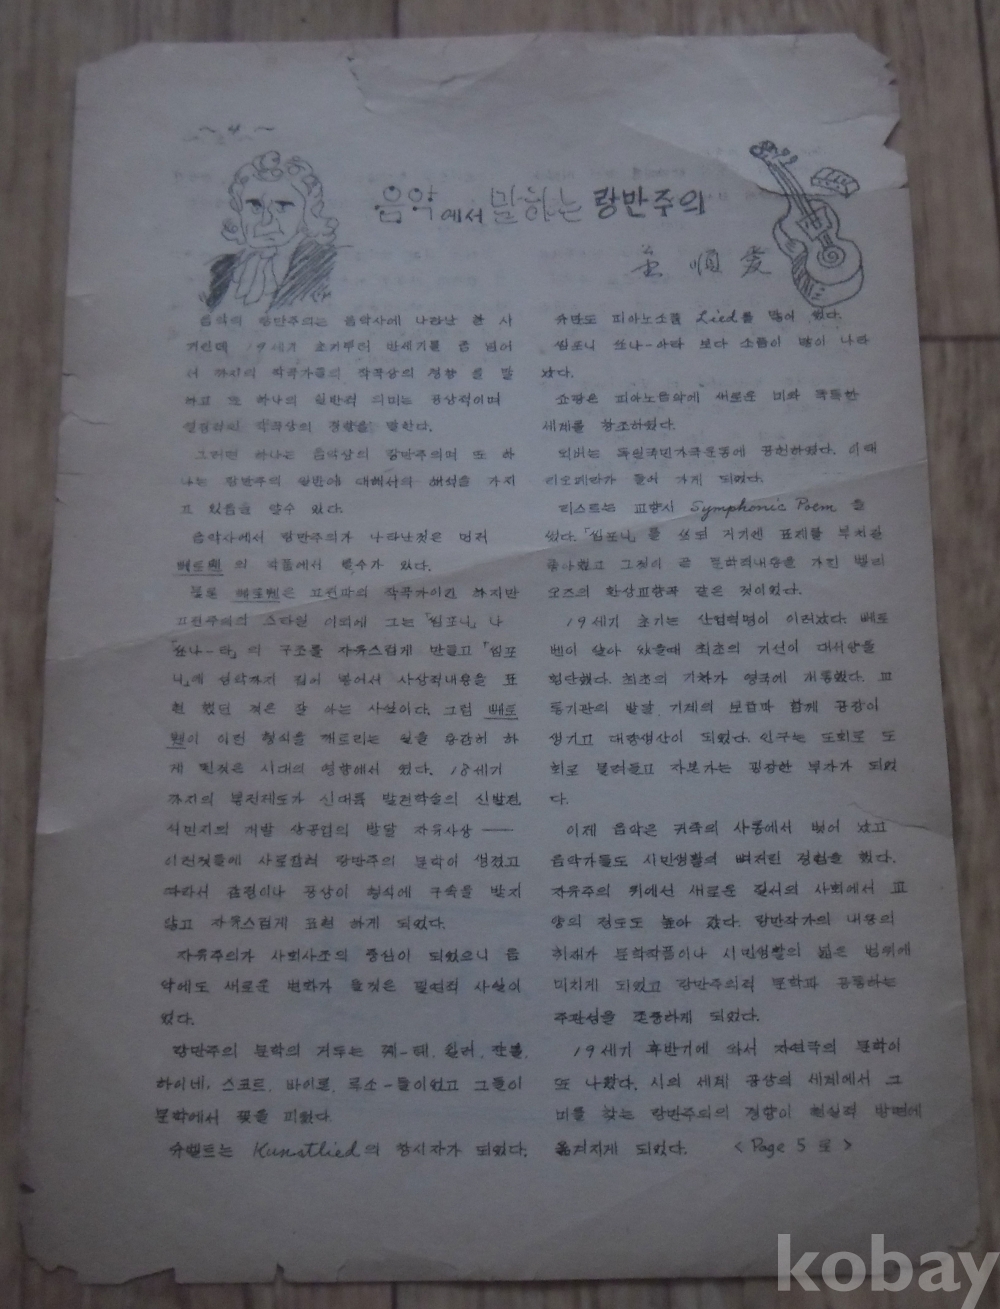 ~ 4 ~
음악에서 말하는 랑만주의
順愛
음악의 랑만주의는 음악사에 나타난 한 사
19세기 초기부터 반세기를 좀 넘어
까지의 작곡가들의 작곡상의 경향을 말
하고 또 하나의 일반적 의미는 공상적이며
작곡상의 경향을 말한다.
그러면 하나는 음악상의 랑만주의며 또 하
나는 랑만주의 일반에 대해서의 해석을 가지
고 있음을 알수 있다.
음악사에서 랑만주의가 나타난것은 먼저
베토벤의 작품에서 볼수가 있다.
물론 베토벤은 고전파의 작곡가이긴 하지만
고전주의의 스타일 이외에 그는 「씸포니」나
「쏘나-타」의 구조를 자유스럽게 만들고 「씸포
니」에 성악까지 집어 넣어서 사상적내용을 표
현 했던 것은 잘 아는 사실이다. 그럼 베토
벤이 이런 형식을 깨트리는 일을 용감히 하
게 된것은 시대의 영향에서 였다. 18세기
까지의 봉건제도가 신대륙 발견학술의 신발전
식민지의 개발 상공업의 발달 자유사상 ──
이런것들에 사로잡혀 랑만주의 문학이 생겼고
따라서 감정이나 공상이 형식에 구속을 받지
않고 자유스럽게 표현 하게 되었다.
자유주의가 사회사조의 중심이 되었으니 음
악에도 새로운 변화가 올것은 필연적 사실이
었다.
랑만주의 문학의 거두는 께-테, 쉴러, 잔볼,
하이네, 스코트, 바이론, 루소-들이였고 그들이
문학에서 꽃을 피웠다.
슈벨트는 Kunstlied의 창시자가 되었다.
슈만도 피아노소품 Lied를 많이 썼다.
씸포니 쏘나-아타 보다 소품이 많이 나타
났다.
쇼팡은 피아노음악에 새로운 미와 독특한
세계를 창조하였다.
외버는 독일국민가극운동에 공헌하였다. 이태
리오페라가 들어 가게 되었다.
리스트는 교향시 Symphonic Poem 을
썼다. 「씸포니」를 쓰되 거기엔 표제를 부치길
좋아했고 그것이 곧 문학적내용을 가진 벨리
오즈의 환상교향곡 같은 것이었다.
19세기 초기는 산업혁명이 이러났다. 베토
벤이 살아 있을때 최초의 기선이 대서양을
횡단했다. 최초의 기차가 영국에 개통했다. 교
통기관의 발달 기계의 보급과 함께 공장이
생기고 대량생산이 되었다. 인구는 도회로 도
회로 몰려들고 자본가는 굉장한 부자가 되었
다.
이제 음악은 귀족의 사롱에서 벗어 났고
음악가들도 시민생활의 뼈저린 경험을 했다.
자유주의 위에선 새로운 질서의 사회에서 교
양의 정도도 높아 갔다. 랑만작가의 내용의
취재가 문학작품이나 시민생활의 넓은 범위에
미치게 되었고 랑만주의적 문학과 공통하는
주관성을 존중하게 되었다.
19세기 후반기에 와서 자연주의 문학이
또 나왔다. 시의 세계 공상의 세계에서 그
미를 찾는 랑만주의의 경향이 현실적 방면에
옮겨지게 되었다. <Page 5 로>
kobay